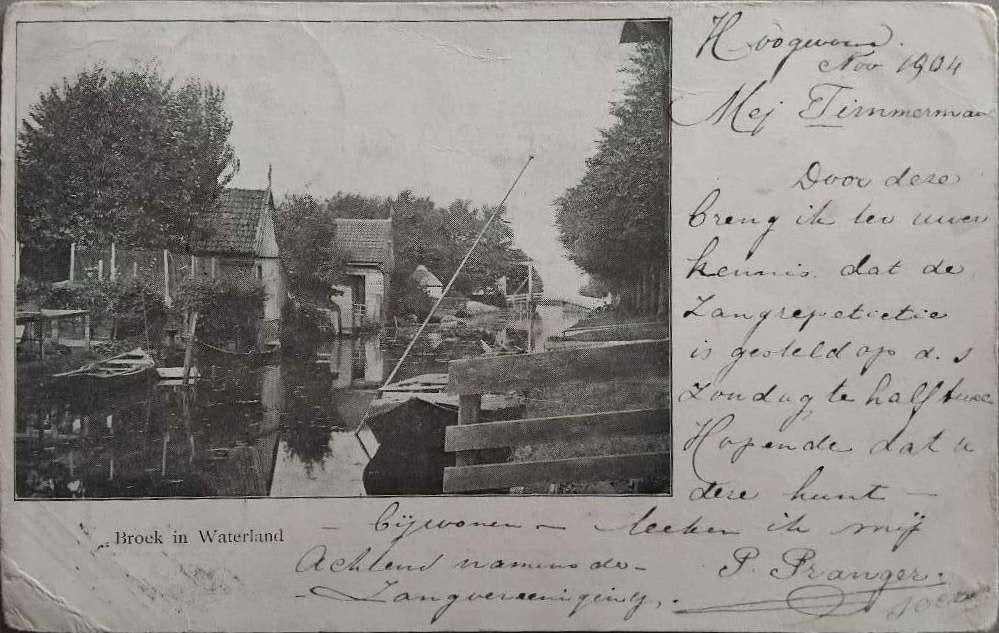 Hoogwoud.
Nov 1904
Mej Timmerman
Door deze
breng ik ter uwer
kennis dat de
Zangrepetietie
is gesteld op d. s
Zondag te half twee
Hopende dat u
deze kunt –
– bijwonen – teeken ik mij
Achtend namens de –
P. Pranger.
– Zangvereeniging,.
Broek in Waterland